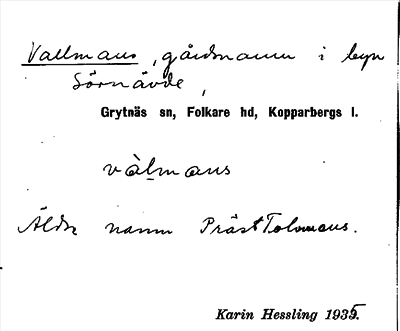 Vallmans, gårdnamn i byn
Sörnävde,
Grytnäs sn, Folkare hd, Kopparbergs l.
vàlmans
Äldre namn Präst Tolomans.
Karin Hessling 1935.